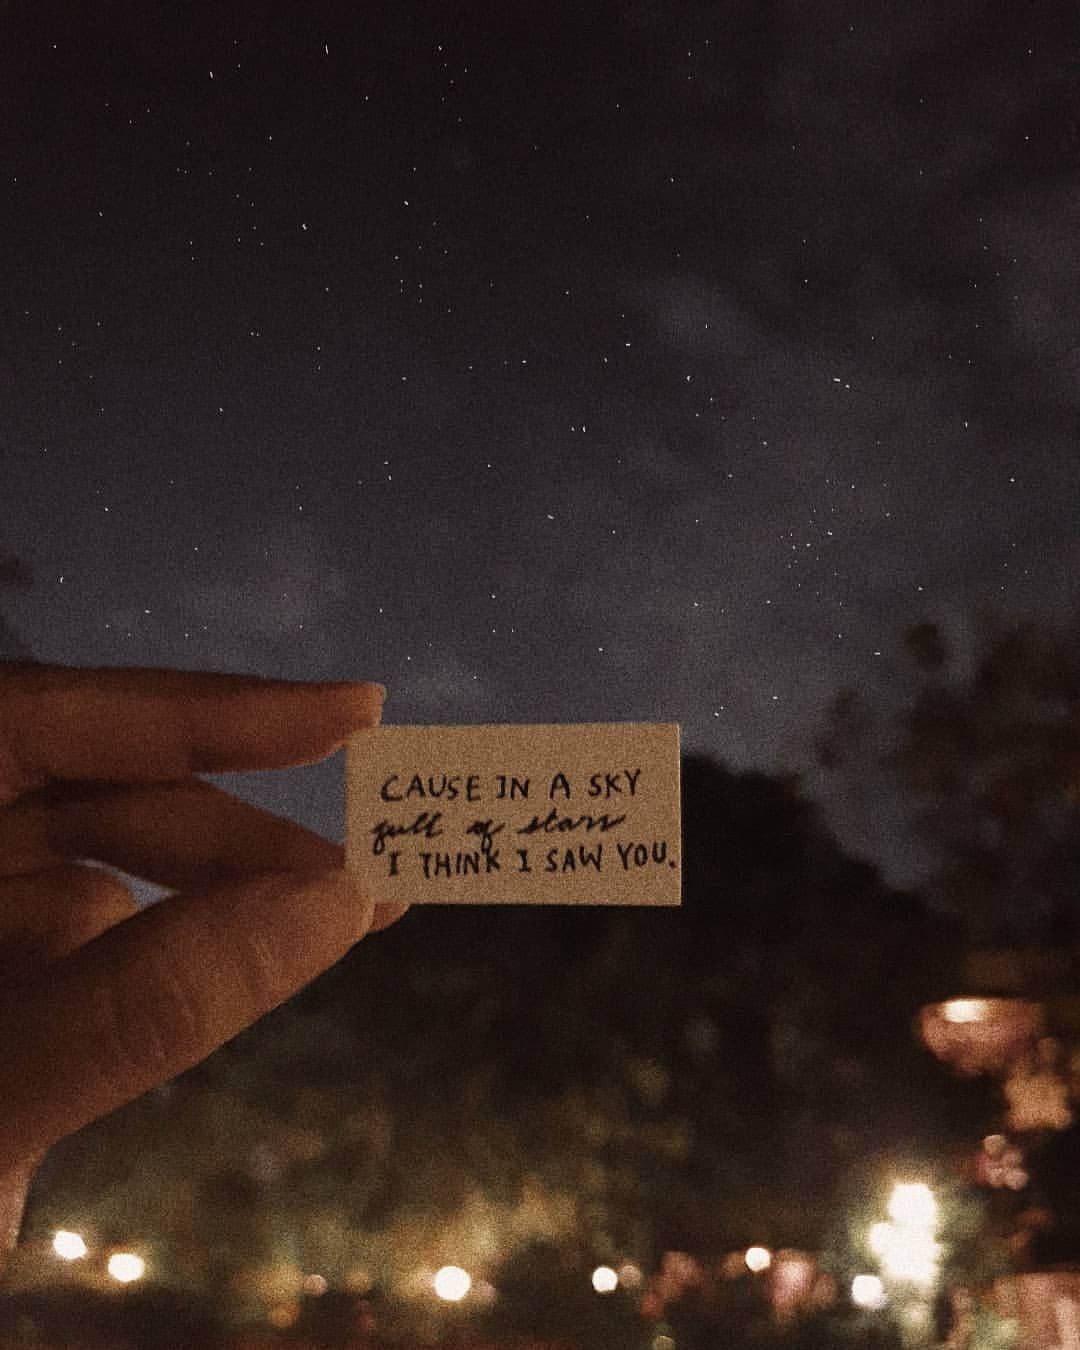 CAUSE IN A SKY
full of stars
I THINK I SAW YOU.